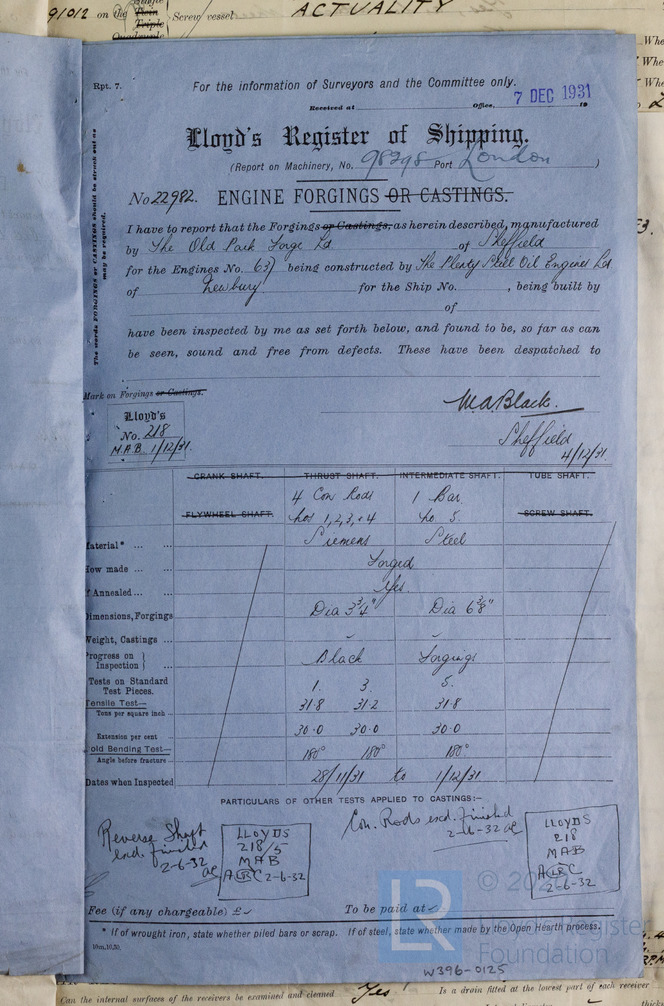 91012 on the
Single
Twin
Triple
Quadruple
Screw vessel
ACTUALITY
Rpt. 7.
For the information of Surveyors and the Committee only.
Received at Office, 7 DEC 1931 19
Lloyd's Register of Shipping.
(Report on Machinery, No. 98298 Port London )
No 22982. ENGINE FORGINGS OR CASTINGS.
The words FORGINGS or CASTINGS should be struck out as
may be required.
I have to report that the Forgings or Castings, as herein described, manufactured
by The Old Park Forge Ld. of Sheffield
for the Engines No. 637 being constructed by The Plenty Still Oil Engines Ld
of Newbury for the Ship No. , being built by
of
have been inspected by me as set forth below, and found to be, so far as can
be seen, sound and free from defects. These have been despatched to
Mark on Forgings or Castings.
Lloyd's
No. 218
M.A.B. 1/12/31.
M A Black.
Sheffield
4/12/31
CRANK SHAFT. THRUST SHAFT. INTERMEDIATE SHAFT. TUBE SHAFT.
4 Con Rods 1 Bar
FLYWHEEL SHAFT. Nos 1, 2, 3, & 4 No 5. SCREW SHAFT.
Material* ... ... Siemens Steel
How made ... ... Forged
If Annealed ... ... Yes.
Dimensions, Forgings Dia 3 3/4" Dia 6 3/8"
Weight, Castings ...
Progress on
Inspection } ... Black Forgings
Tests on Standard
Test Pieces. 1. 3. 5.
Tensile Test—
Tons per square inch .. 31.8 31.2 31.8
Extension per cent .. 30.0 30.0 30.0
Cold Bending Test—
Angle before fracture .. 180° 180° 180°
Dates when Inspected 28/11/31 to 1/12/31
PARTICULARS OF OTHER TESTS APPLIED TO CASTINGS:—
Reverse Shaft
exd. finished
2-6-32
LLOYDS
218/5
MAB
A LR C 2-6-32
Con. Rods exd. finished
2-6-32
LLOYDS
218
MAB
A LR C
2-6-32
Fee (if any chargeable) £ To be paid at
* If of wrought iron, state whether piled bars or scrap. If of steel, state whether made by the Open Hearth process.
10m,10,30.
LR
Foundation
W396-0125
Can the internal surfaces of the receivers be examined and cleaned Yes Is a drain fitted at the lowest part of each receiver